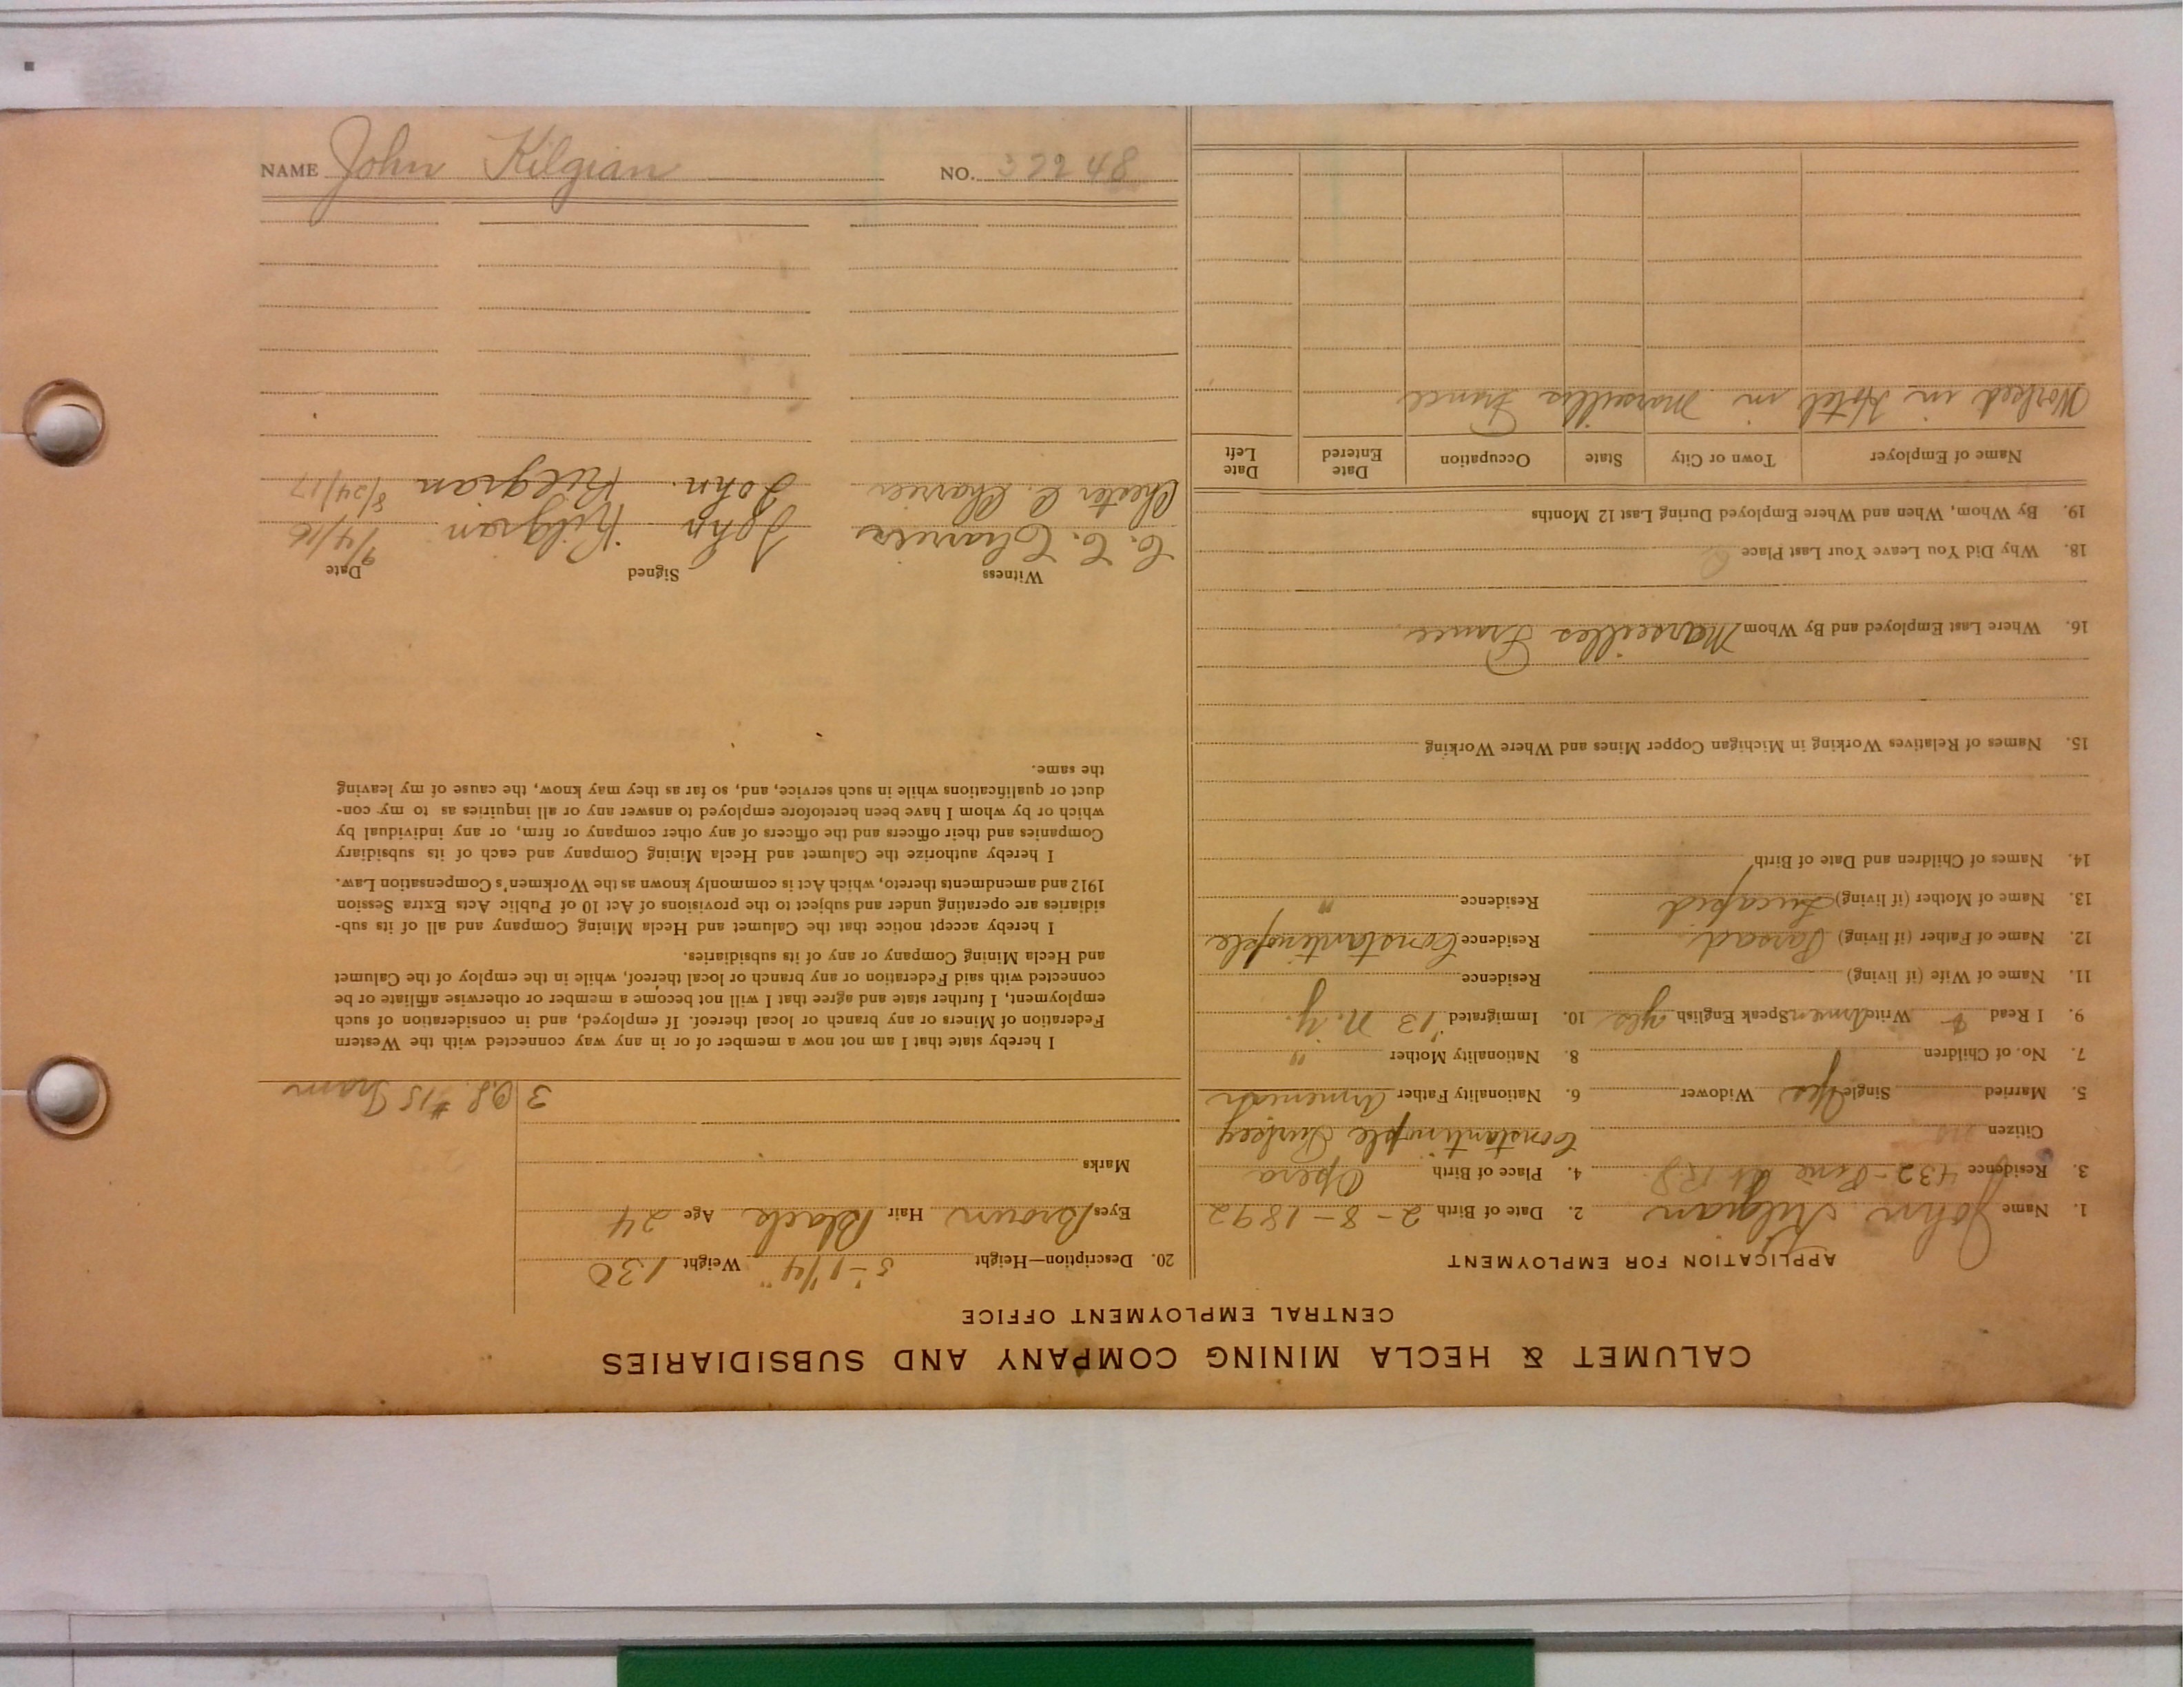 CALUMET & HECLA MINING COMPANY AND SUBSIDIARIES
CENTRAL EMPLOYMENT OFFICE
APPLICATION FOR EMPLOYMENT
1. Name John Kilgian 2. Date of Birth 2-8-1892
3. Residence 432-Pine St 4. Place of Birth Opera
Citizen Constantinople Turkey
5. Married Single Yes Widower 6. Nationality Father Armenian
7. No. of Children 8. Nationality Mother "
9. I Read & Write Speak English yes 10. Immigrated '13 N.Y.
11. Name of Wife (if living) Residence
12. Name of Father (if living) Residence Constantinople
13. Name of Mother (if living) Residence "
14. Names of Children and Date of Birth
15. Names of Relatives Working in Michigan Copper Mines and Where Working
16. Where Last Employed and By Whom Marseilles France
18. Why Did You Leave Your Last Place
19. By Whom, When and Where Employed During Last 12 Months
Name of Employer Town or City State Occupation Date Entered Date Left
Worked in Hotel in Marseilles France
20. Description—Height 5'-1 1/4" Weight 130
Eyes Brown Hair Black Age 24
Marks
3 #15 Tram
I hereby state that I am not now a member of or in any way connected with the Western
Federation of Miners or any branch or local thereof. If employed, and in consideration of such
employment, I further state and agree that I will not become a member or otherwise affiliate or be
connected with said Federation or any branch or local thereof, while in the employ of the Calumet
and Hecla Mining Company or any of its subsidiaries.
I hereby accept notice that the Calumet and Hecla Mining Company and all of its sub-
sidiaries are operating under and subject to the provisions of Act 10 of Public Acts Extra Session
1912 and amendments thereto, which Act is commonly known as the Workmen's Compensation Law.
I hereby authorize the Calumet and Hecla Mining Company and each of its subsidiary
Companies and their officers and the officers of any other company or firm, or any individual by
which or by whom I have been heretofore employed to answer any or all inquiries as to my con-
duct or qualifications while in such service, and, so far as they may know, the cause of my leaving
the same.
Witness Signed Date
C. C. Charles John Kilgian 9/4/16
Chester C. Charles John. Kilgian 8/24/17
NAME John Kilgian NO. 32248